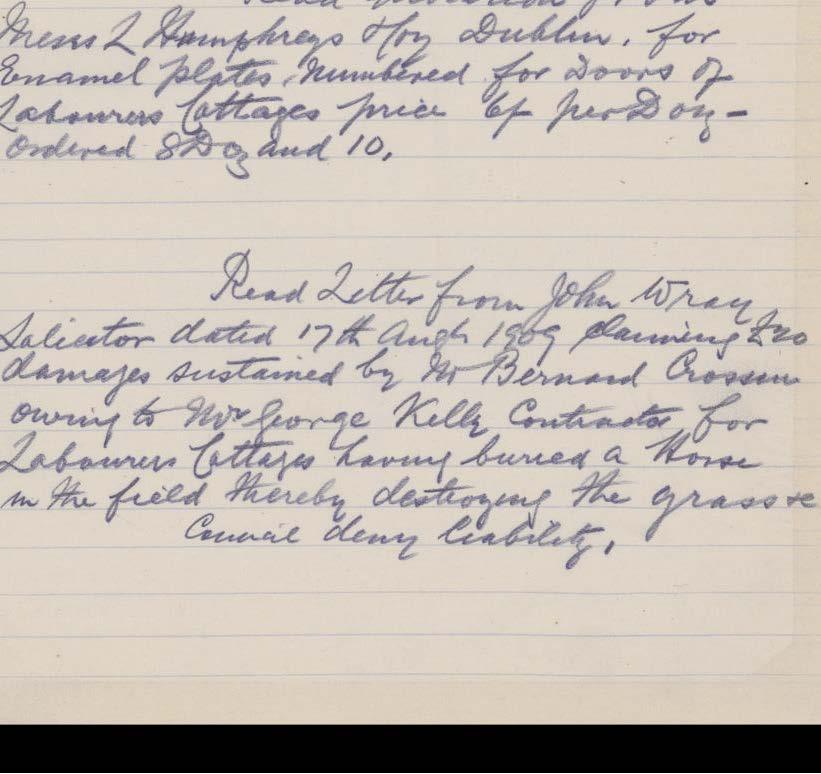 Messrs L Humphreys & Coy Dublin, for
Enamel Plates, Numbered for Doors of
Labourers Cottages price 6/- per Doz -
Ordered 8 Doz and 10.
Read Letter from John Wray
Solicitor dated 17th Augt 1909 claiming £20
damages sustained by Mr Bernard Crossen
owing to Mr George Kelly Contractor for
Labourers Cottages having buried a Horse
in the field thereby destroying the grass &c
Council deny liability.